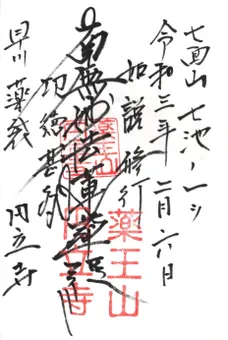 七面山 七池ノ一ツ
令和三年 二月 六日
如説修行
南無妙法蓮華経
功徳甚多
早川 薬袋 円立寺
薬王山
円立寺